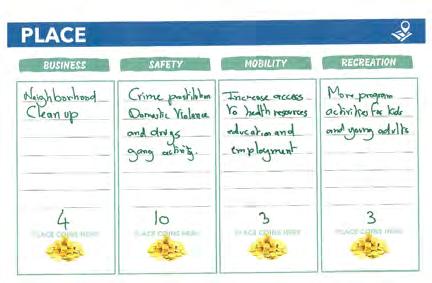 PLACE
BUSINESS
Neighborhood
Clean up
4
PLACE COINS HERE
SAFETY
Crime prostitution
Domestic Violence
and drugs
gang activity.
10
PLACE COINS HERE
MOBILITY
Increase access
to health resources
education and
employment
3
PLACE COINS HERE
RECREATION
More program
activities for kids
and young adults
3
PLACE COINS HERE